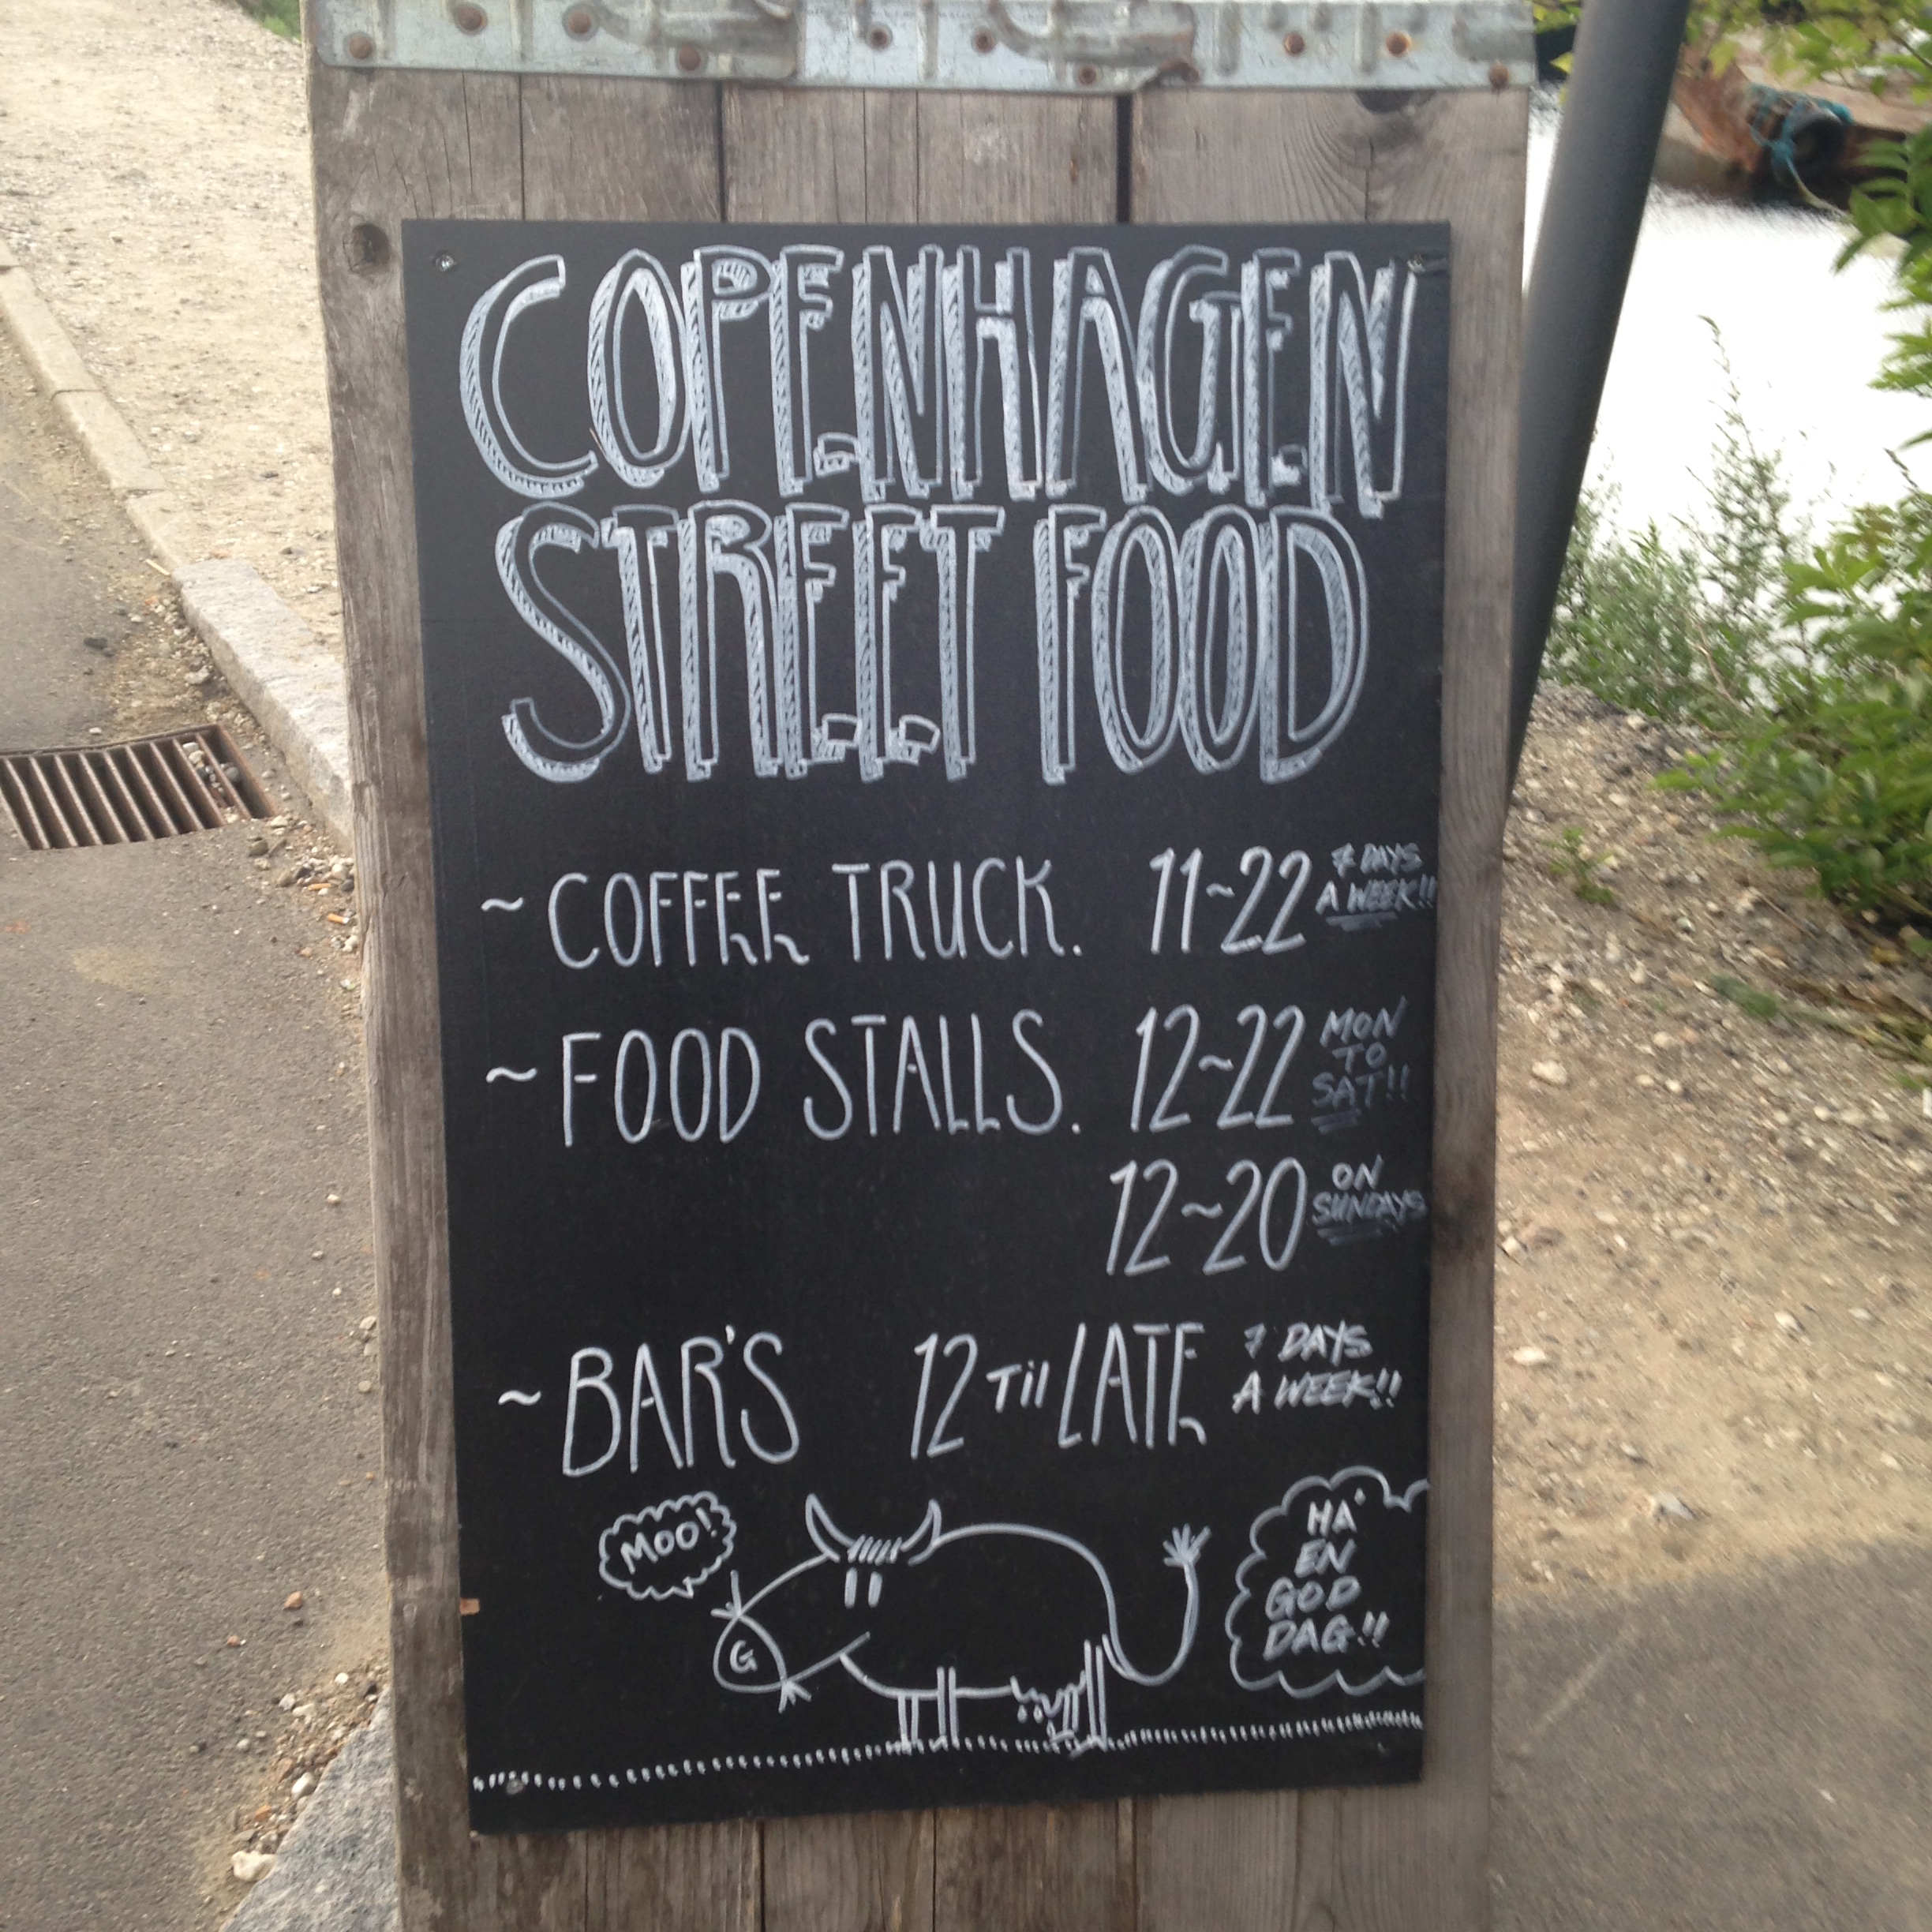 COPENHAGEN
STREET FOOD
~ COFFEE TRUCK. 11~22 7 DAYS
A WEEK!!
~ FOOD STALLS. 12~22 MON
TO
SAT!!
12~20 ON
SUNDAYS
~ BAR'S 12 Til LATE 7 DAYS
A WEEK!!
MOO!
G
HA'
EN
GOD
DAG!!